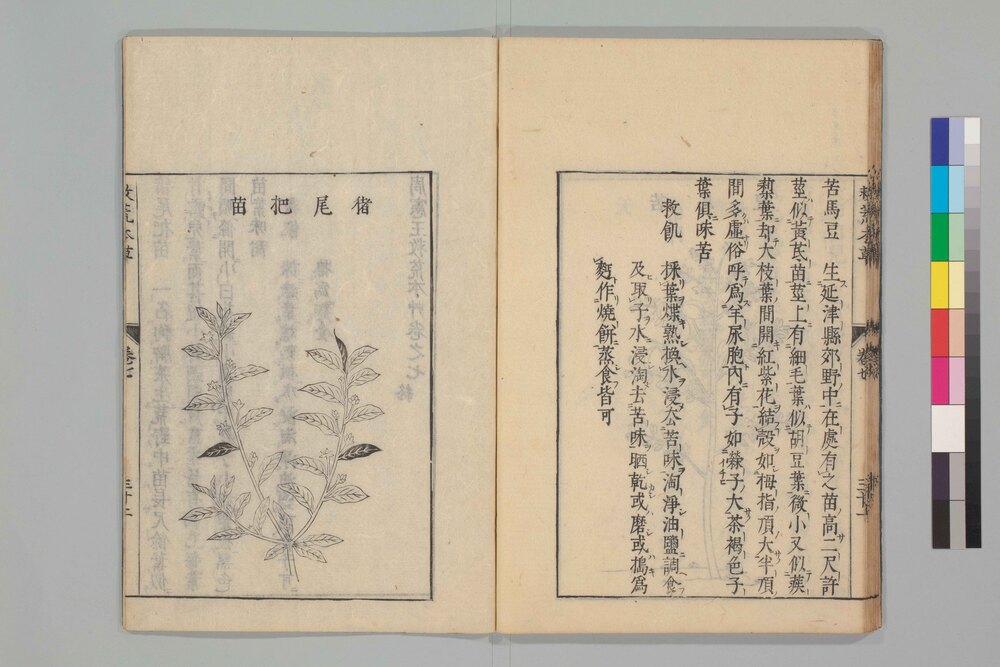 苦馬豆 生延津縣郊野中在處有之苗髙二尺許
莖似黃芪苗莖上有細毛葉似胡豆葉微小又似蒺
蔾葉却大枝葉間開紅紫花結殼如拇指頂大半頂
間多虛俗呼爲羊尿胞內有子如蔴子大茶褐色子
葉俱味苦
救飢 採葉煠熟換水浸去苦味淘淨油鹽調食
及取子水浸淘去苦味晒乾或磨或搗爲
麪作燒餅蒸食皆可
猪尾把苗
卷七
三十二